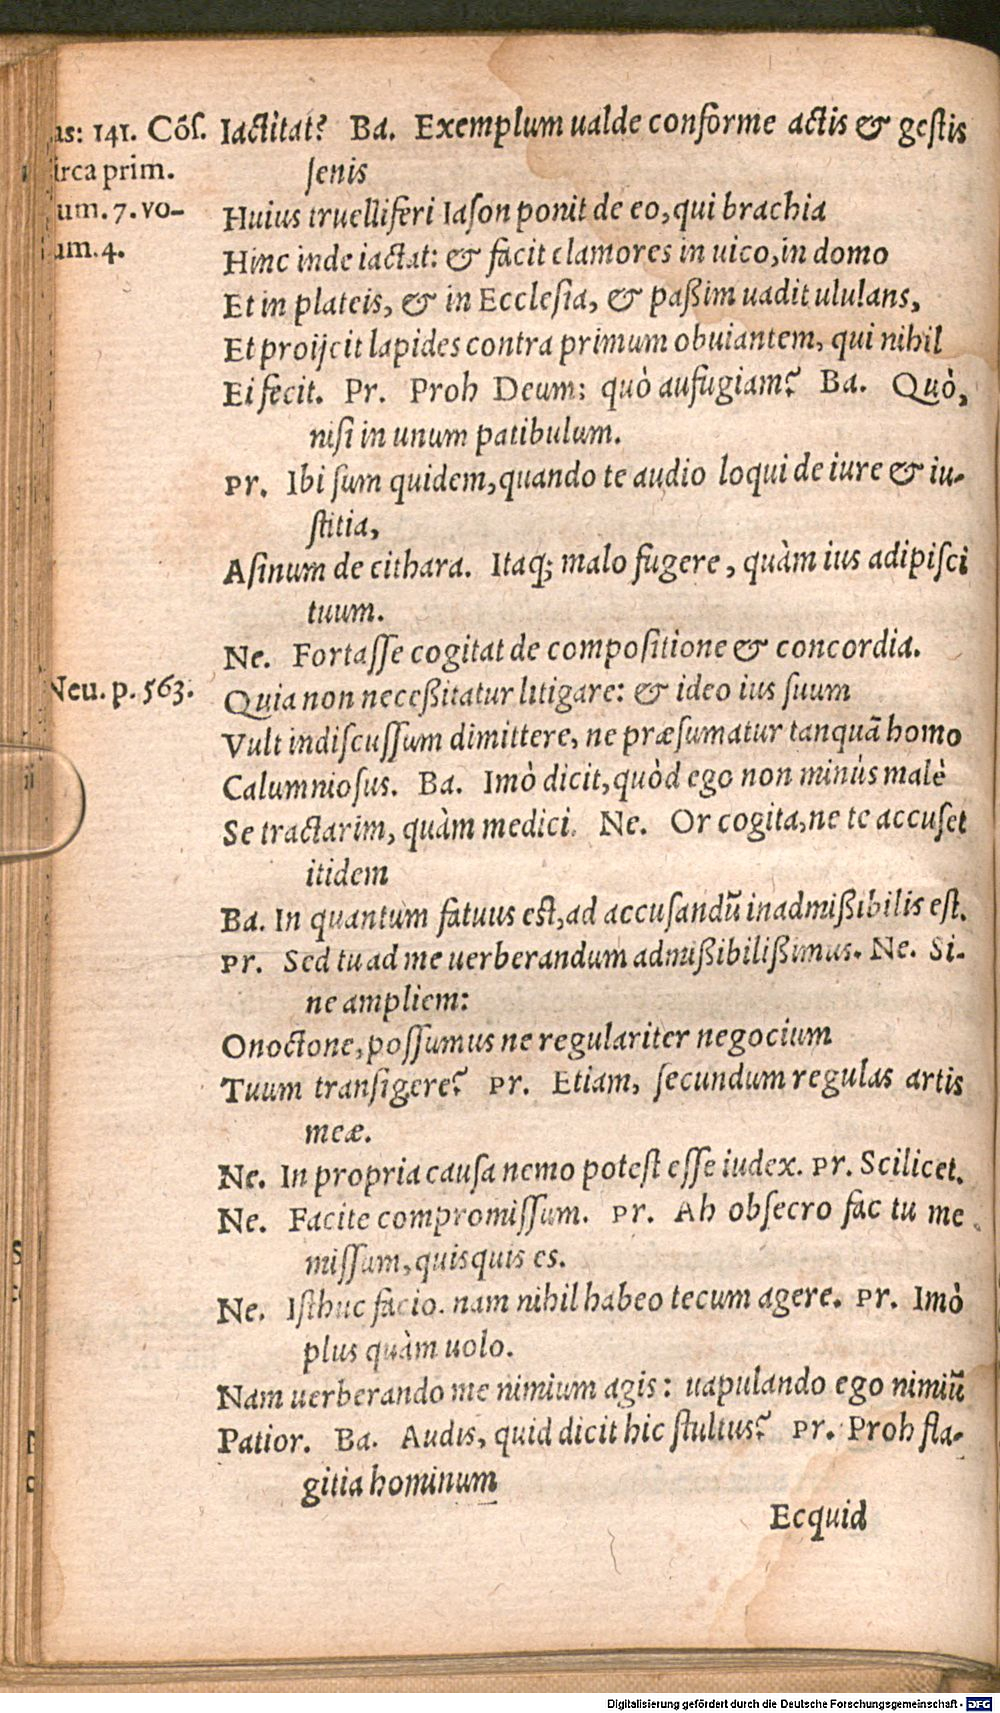 as: 141. Cōſ.
irca prim.
um. 7. vo-
um. 4.
Iactitat? Ba. Exemplum ualde conforme actis & geſtis
ſenis
Huius truelliferi Iaſon ponit de eo, qui brachia
Hinc inde iactat: & facit clamores in uico, in domo
Et in plateis, & in Eccleſia, & paßim uadit ululans,
Et proijcit lapides contra primum obuiantem, qui nihil
Ei fecit. Pr. Proh Deum: quò aufugiam? Ba. Quò,
niſi in unum patibulum.
Pr. Ibi ſum quidem, quando te audio loqui de iure & iu-
ſtitia,
Aſinum de cithara. Itaq; malo fugere, quàm ius adipiſci
tuum.
Ne. Fortaſſe cogitat de compoſitione & concordia.
Neu. p. 563.
Quia non neceßitatur litigare: & ideo ius ſuum
Vult indiſcuſſum dimittere, ne præſumatur tanquā homo
Calumnioſus. Ba. Imò dicit, quòd ego non minùs malè
Se tractarim, quàm medici. Ne. Or cogita, ne te accuſet
itidem
Ba. In quantum fatuus eſt, ad accuſandū inadmißibilis eſt.
Pr. Sed tu ad me uerberandum admißibilißimus. Ne. Si-
ne ampliem:
Onoctone, poſſumus ne regulariter negocium
Tuum tranſigere? Pr. Etiam, ſecundum regulas artis
meæ.
Ne. In propria cauſa nemo poteſt eſſe iudex. Pr. Scilicet.
Ne. Facite compromiſſum. Pr. Ah obſecro fac tu me
miſſum, quisquis es.
Ne. Iſthuc facio. nam nihil habeo tecum agere. Pr. Imò
plus quàm uolo.
Nam uerberando me nimium agis: uapulando ego nimiū
Patior. Ba. Audis, quid dicit hic ſtultus? Pr. Proh fla-
gitia hominum
Ecquid
Digitalisierung gefördert durch die Deutsche Forschungsgemeinschaft - DFG